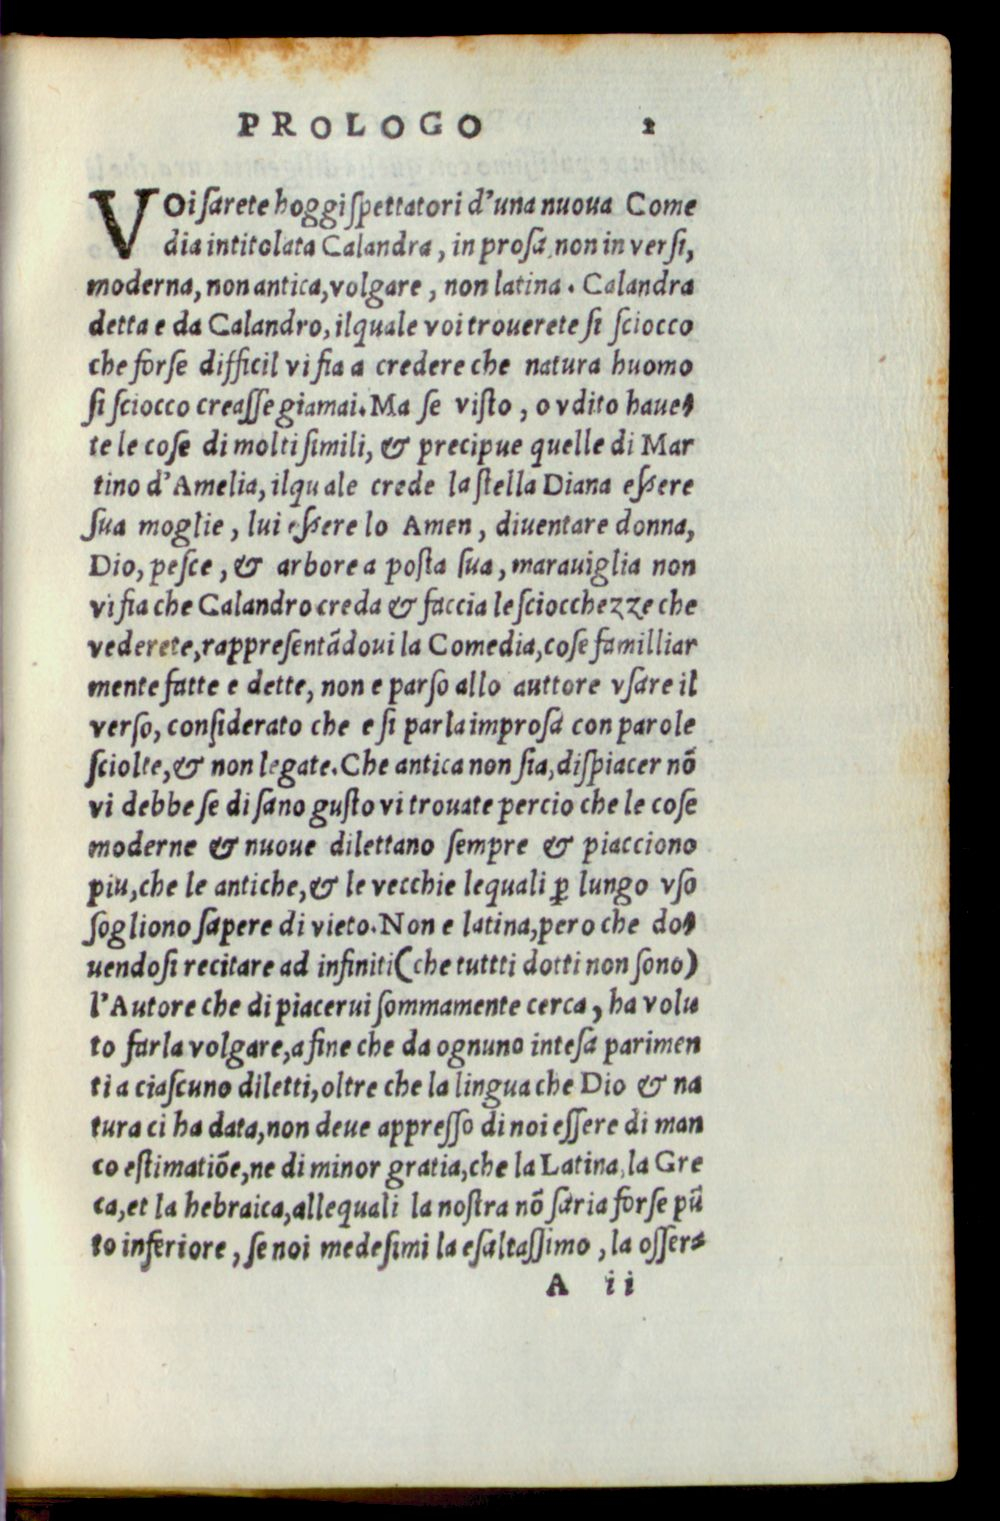 PROLOGO 2
VOi ſarete hoggi ſpettatori d'una nuoua Come
dia intitolata Calandra, in proſa, non in verſi,
moderna, non antica, volgare, non latina. Calandra
detta e da Calandro, ilquale voi trouerete ſi ſciocco
che forſe difficil vi fia a credere che natura huomo
ſi ſciocco creaſſe giamai. Ma ſe viſto, o vdito haue-
te le coſe di molti ſimili, & precipue quelle di Mar
tino d'Amelia, ilquale crede la ſtella Diana eſſere
ſua moglie, lui eſſere lo Amen, diuentare donna,
Dio, peſce, & arbore a poſta ſua, marauiglia non
vi fia che Calandro creda & faccia le ſciocchezze che
vederete, rappreſentādoui la Comedia, coſe familliar
mente fatte e dette, non e parſo allo auttore vſare il
verſo, conſiderato che e ſi parla improſa con parole
ſciolte, & non legate. Che antica non ſia, diſpiacer nō
vi debbe ſe di ſano guſto vi trouate percio che le coſe
moderne & nuoue dilettano ſempre & piacciono
piu, che le antiche, & le vecchie lequali ꝑ lungo vſo
ſogliono ſapere di vieto. Non e latina, pero che do-
uendoſi recitare ad infiniti (che tuttti dotti non ſono)
l'Autore che di piacerui ſommamente cerca, ha volu
to farla volgare, a fine che da ognuno inteſa parimen
ti a ciaſcuno diletti, oltre che la lingua che Dio & na
tura ci ha data, non deue appreſſo di noi eſſere di man
co eſtimatiōe, ne di minor gratia, che la Latina, la Gre
ca, et la hebraica, allequali la noſtra nō ſaria forſe pū
to inferiore, ſe noi medeſimi la eſaltaſſimo, la oſſer-
A ii